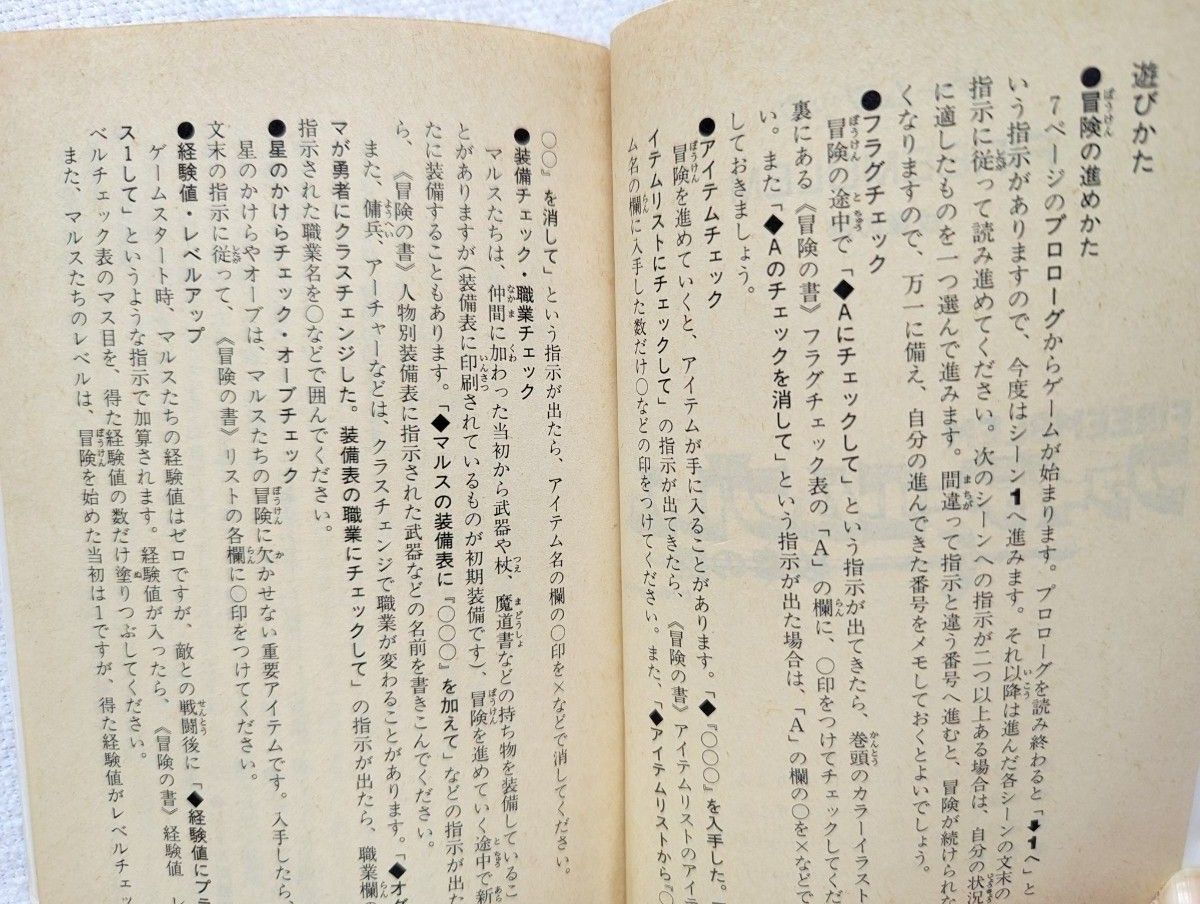 遊びかた
●冒険の進めかた
7ページのプロローグからゲームが始まります。プロローグを読み終わると「➡1へ」と
いう指示がありますので、今度はシーン1へ進みます。それ以降は進んだ各シーンの文末の
指示に従って読み進めてください。次のシーンへの指示が二つ以上ある場合は、自分の状況
に適したものを一つ選んで進みます。間違って指示と違う番号へ進むと、冒険が続けられな
くなりますので、万一に備え、自分の進んできた番号をメモしておくとよいでしょう。
●フラグチェック
冒険の途中で「◆Aにチェックして」という指示が出てきたら、巻頭のカラーイラスト
裏にある《冒険の書》フラグチェック表の「A」の欄に、○印をつけてチェックしてくだ
い。また「◆Aのチェックを消して」という指示が出た場合は、「A」の欄の○を×などで
しておきましょう。
●アイテムチェック
冒険を進めていくと、アイテムが手に入ることがあります。「◆『○○○』を入手した。
イテムリストにチェックして」の指示が出てきたら、《冒険の書》アイテムリストのアイテ
ム名の欄に入手した数だけ○などの印をつけてください。また、「◆アイテムリストから『○
○○』を消して」という指示が出たら、アイテム名の欄の○印を×などで消してください。
●装備チェック・職業チェック
マルスたちは、仲間に加わった当初から武器や杖、魔道書などの持ち物を装備しているこ
とがありますが（装備表に印刷されているものが初期装備です）、冒険を進めていく途中で新
たに装備することもあります。「◆マルスの装備表に『○○○』を加えて」などの指示が出た
ら、《冒険の書》人物別装備表に指示された武器などの名前を書きこんでください。
また、傭兵、アーチャーなどは、クラスチェンジで職業が変わることがあります。「◆オグ
マが勇者にクラスチェンジした。装備表の職業にチェックして」の指示が出たら、職業欄の
指示された職業名を○などで囲んでください。
●星のかけらチェック・オーブチェック
星のかけらやオーブは、マルスたちの冒険に欠かせない重要アイテムです。入手したら、
文末の指示に従って、《冒険の書》リストの各欄に○印をつけてください。
●経験値・レベルアップ
ゲームスタート時、マルスたちの経験値はゼロですが、敵との戦闘後に「◆経験値にプラ
ス1して」というような指示で加算されます。経験値が入ったら、《冒険の書》経験値　レ
ベルチェック表のマス目を、得た経験値の数だけ塗りつぶしてください。
また、マルスたちのレベルは、冒険を始めた当初は1ですが、得た経験値がレベルチェッ